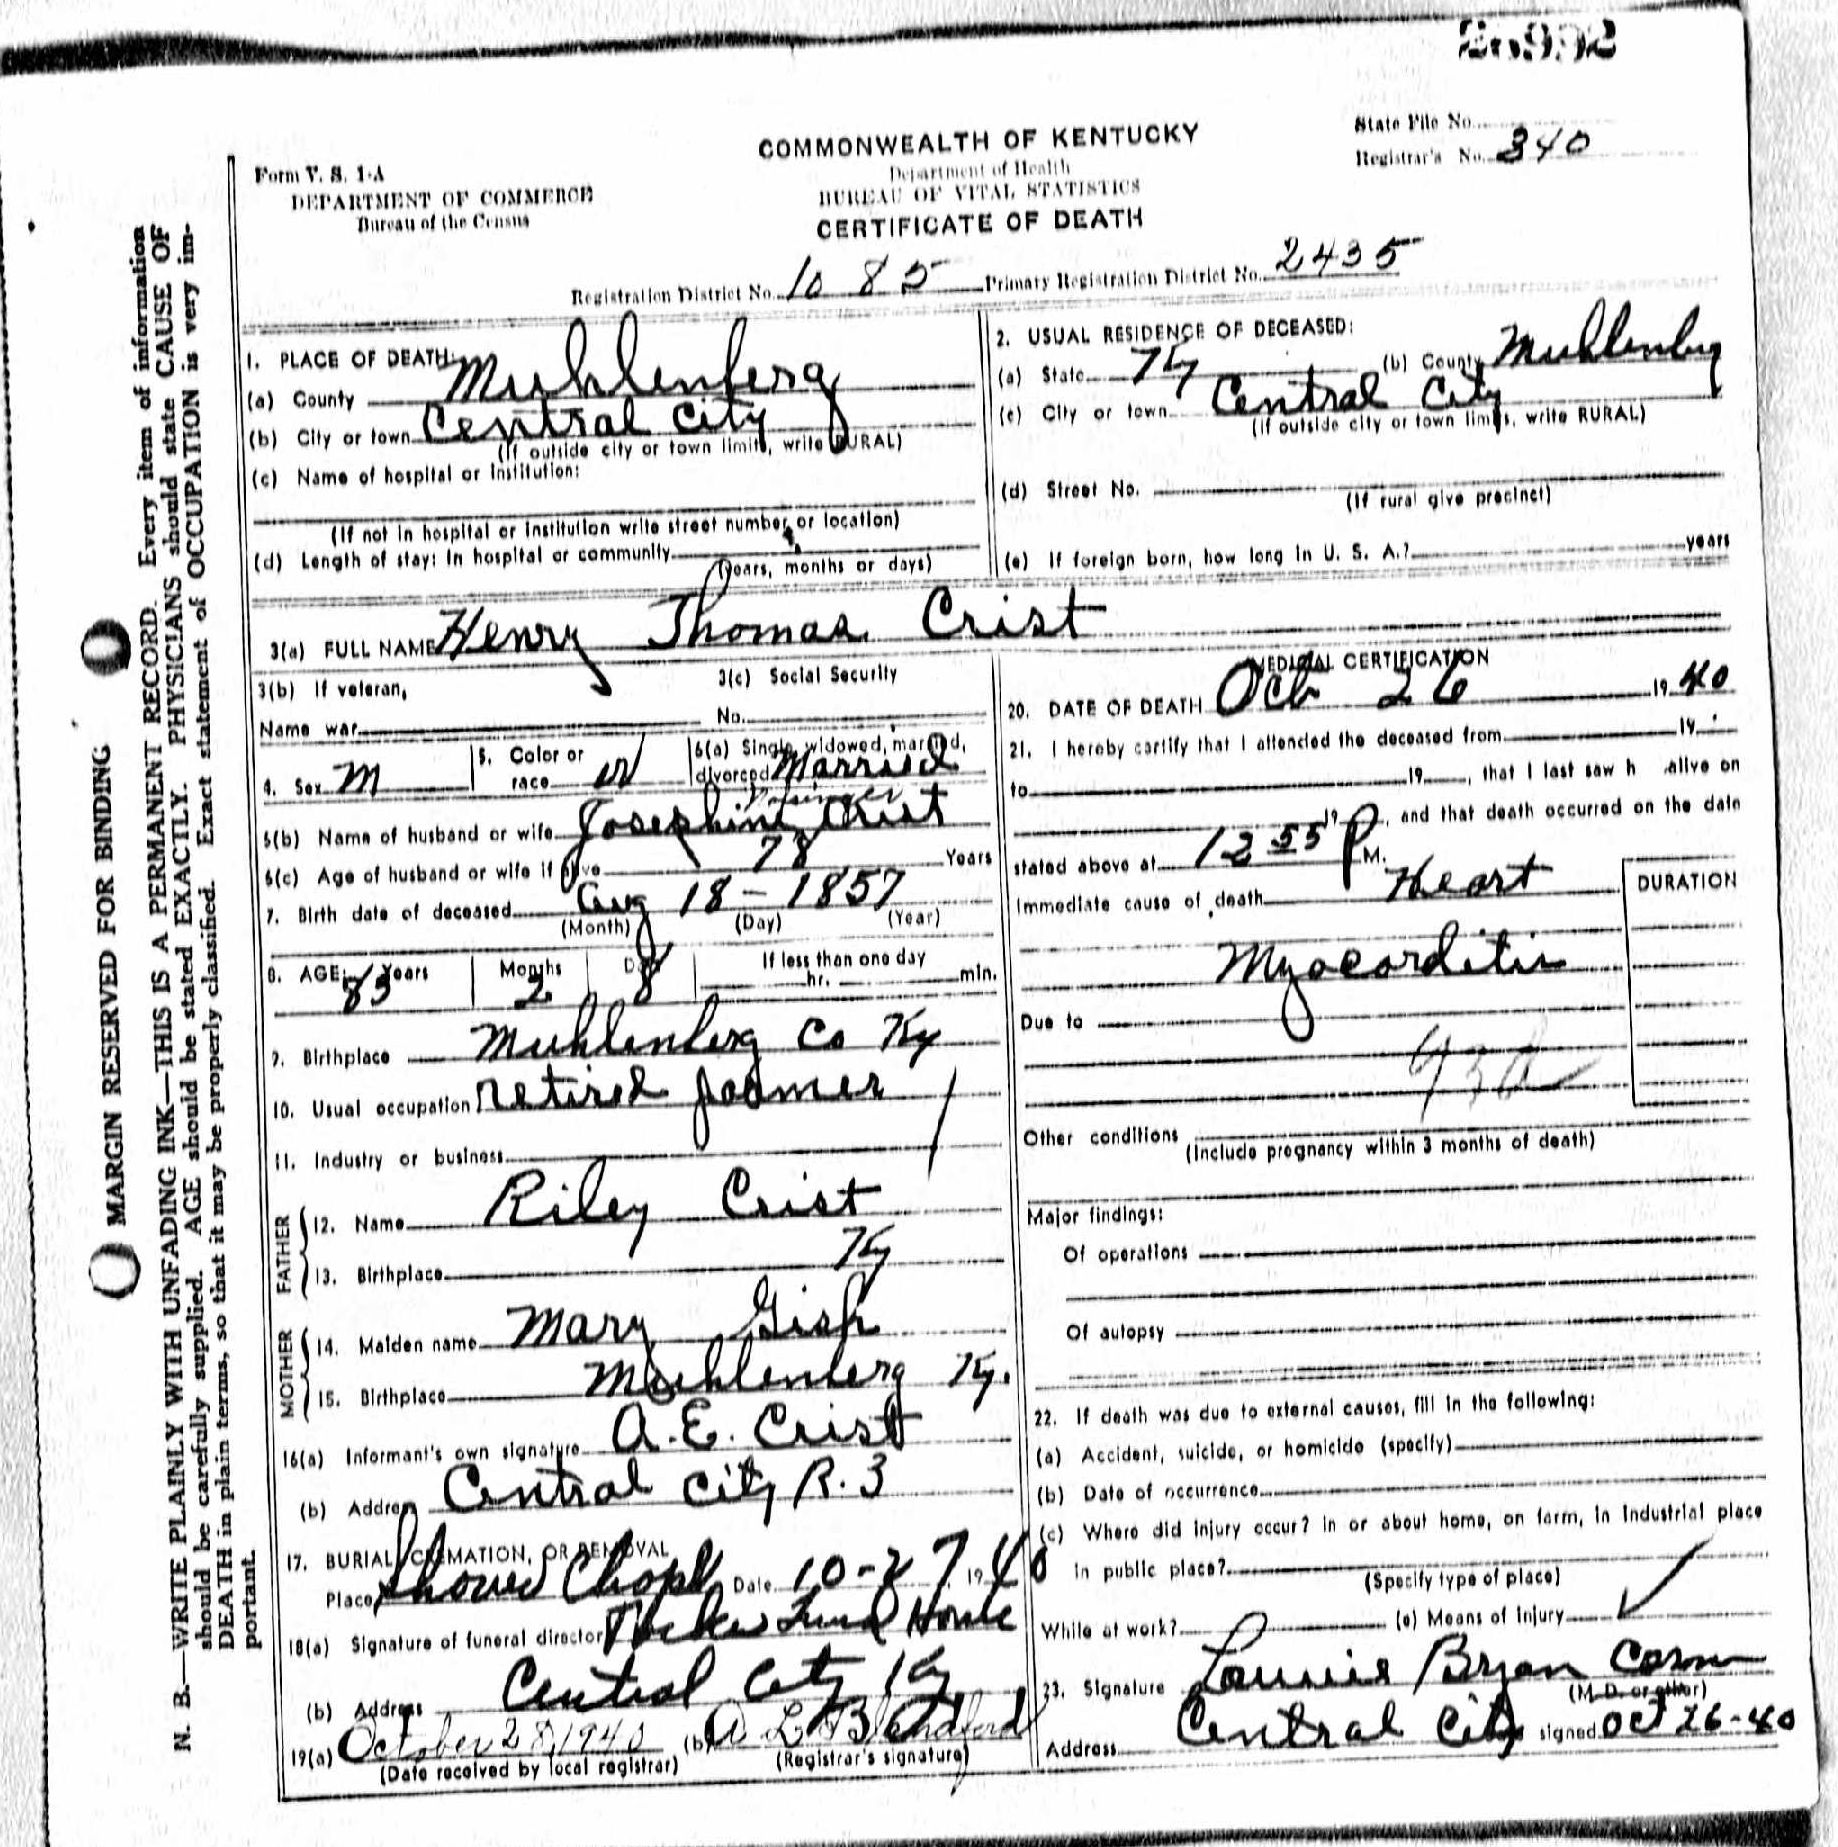 State File No.
COMMONWEALTH OF KENTUCKY
Registrar's No. 340
Form V. S. 1-A
Department of Health
DEPARTMENT OF COMMERCE
BUREAU OF VITAL STATISTICS
Bureau of the Census
CERTIFICATE OF DEATH
Registration District No. 1085 Primary Registration District No. 2435
MARGIN RESERVED FOR BINDING
N. B.—WRITE PLAINLY WITH UNFADING INK—THIS IS A PERMANENT RECORD. Every item of information
should be carefully supplied. AGE should be stated EXACTLY. PHYSICIANS should state CAUSE OF
DEATH in plain terms, so that it may be properly classified. Exact statement of OCCUPATION is very im-
portant.
1. PLACE OF DEATH:
(a) County Muhlenberg
(b) City or town Central City
(If outside city or town limits, write RURAL)
(c) Name of hospital or institution:
(If not in hospital or institution write street number or location)
(d) Length of stay: In hospital or community
(years, months or days)
2. USUAL RESIDENCE OF DECEASED:
(a) State Ky (b) County Muhlenberg
(c) City or town Central City
(If outside city or town limits, write RURAL)
(d) Street No.
(If rural give precinct)
(e) If foreign born, how long in U. S. A.? years
3(a) FULL NAME Henry Thomas Crist
3(b) If veteran, 3(c) Social Security
Name war No.
4. Sex M 5. Color or race W 6(a) Single, widowed, married, divorced Married
6(b) Name of husband or wife Josephine Crist
6(c) Age of husband or wife if alive 78 Years
7. Birth date of deceased Aug 18 - 1857
(Month) (Day) (Year)
8. AGE: Years 83 Months 2 Days 8 If less than one day
hr. min.
9. Birthplace Muhlenberg Co Ky
10. Usual occupation retired farmer
11. Industry or business
FATHER
12. Name Riley Crist
13. Birthplace Ky
MOTHER
14. Maiden name Mary Gish
15. Birthplace Muhlenberg Ky.
16(a) Informant's own signature A. E. Crist
(b) Address Central City R. 3
17. BURIAL, CREMATION, OR REMOVAL
Place Chapel Date 10-27 1940
18(a) Signature of funeral director Tucker Funeral Home
(b) Address Central City Ky
19(a) October 28, 1940 (b) A L Blandford
(Date received by local registrar) (Registrar's signature)
MEDICAL CERTIFICATION
20. DATE OF DEATH Oct 26 1940
21. I hereby certify that I attended the deceased from 19
to 19, that I last saw h alive on
19, and that death occurred on the date
stated above at 12 55 P M.
Immediate cause of death Heart
DURATION
Myocarditis
Due to
Other conditions
(Include pregnancy within 3 months of death)
Major findings:
Of operations
Of autopsy
22. If death was due to external causes, fill in the following:
(a) Accident, suicide, or homicide (specify)
(b) Date of occurrence
(c) Where did injury occur? in or about home, on farm, in industrial place
in public place?
(Specify type of place)
While at work? (e) Means of injury
23. Signature Lounie Bryan
(M. D. or other)
Address Central City signed Oct 26-40